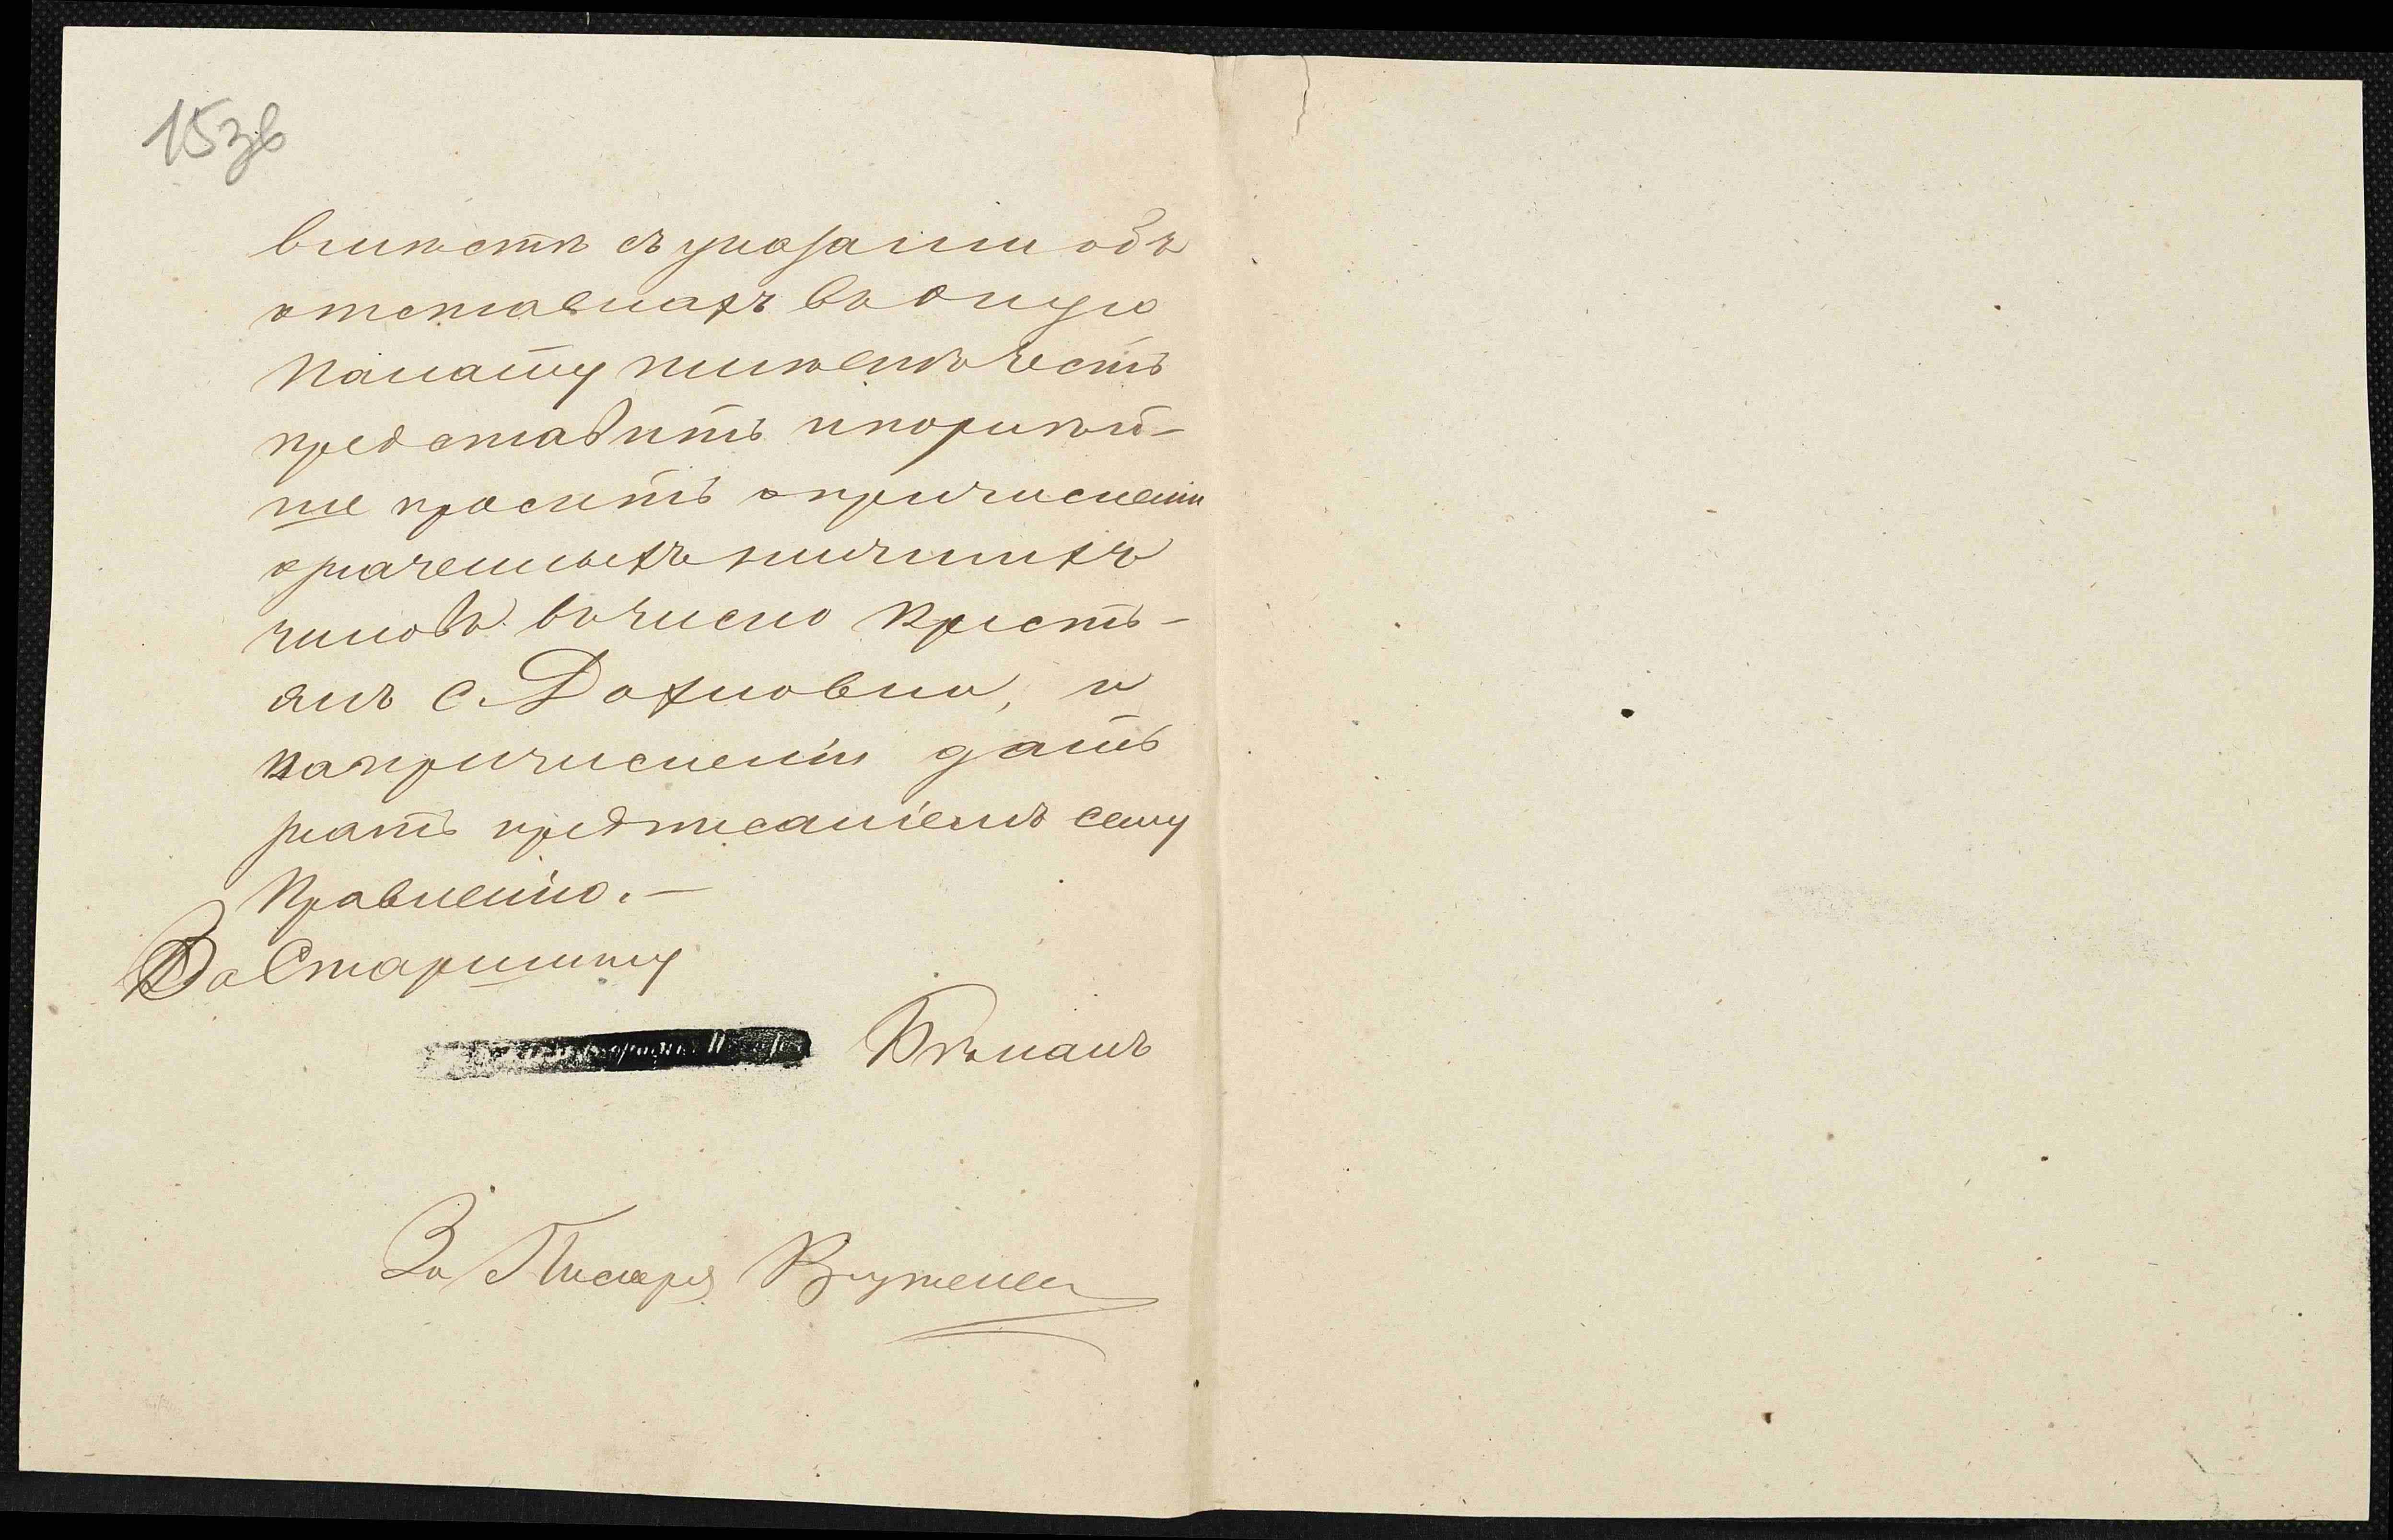 15 зв
вмѣстѣ съ указами объ
отставкахъ въ оную
Палату имѣетъ честь
представить и покорнѣй-
ше просить о причислении
означенныхъ нижнихъ
чиновъ въ число Кресть-
янъ с. Дохновки, и
по причисленіи дать
знать предписаніемъ сему
Правленію. —
За Старшину
Бѣланъ
За Писаря